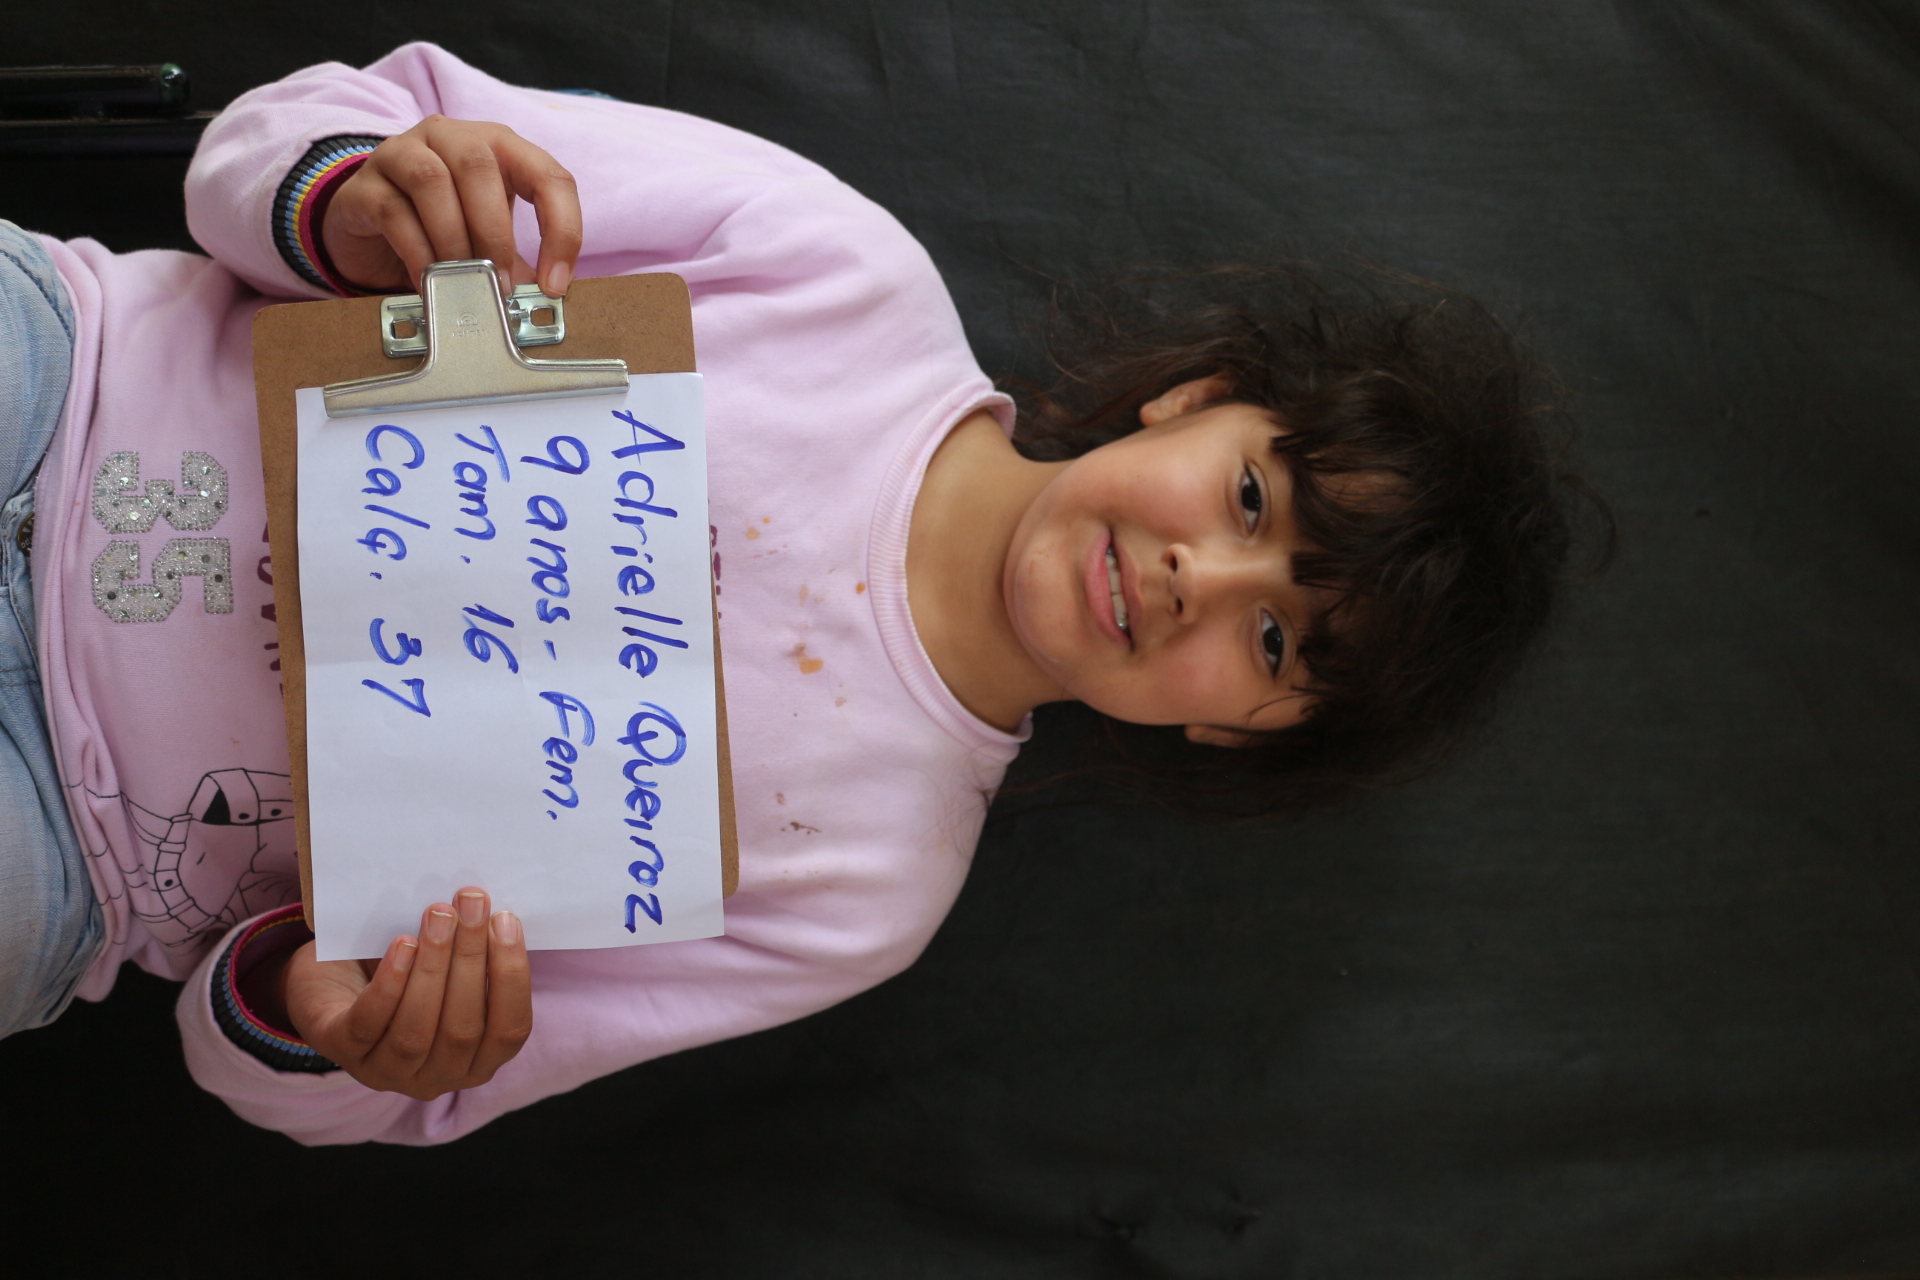 Adrielle Queiroz
9 anos - Fem.
Tam. 16
Calç. 37
35